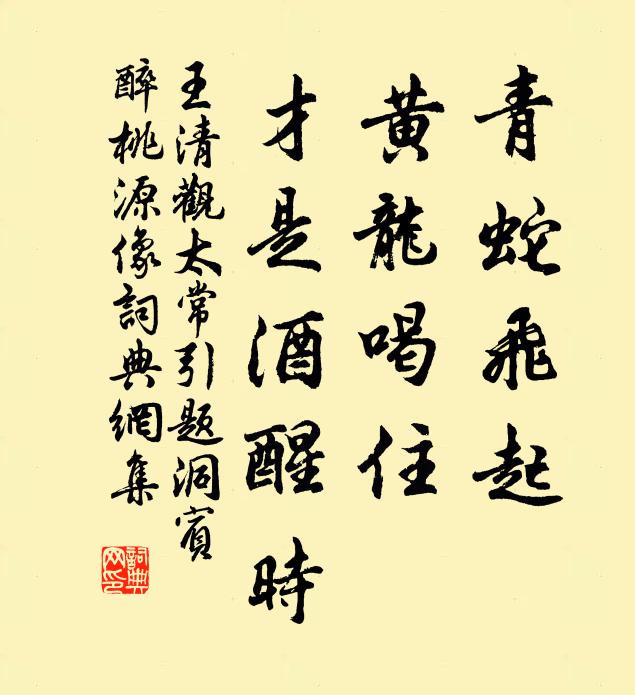 青蛇飛起
黃龍喝住
才是酒醒時
王清觀太常引題洞賓
醉桃源像詞典網集
詞典
网印